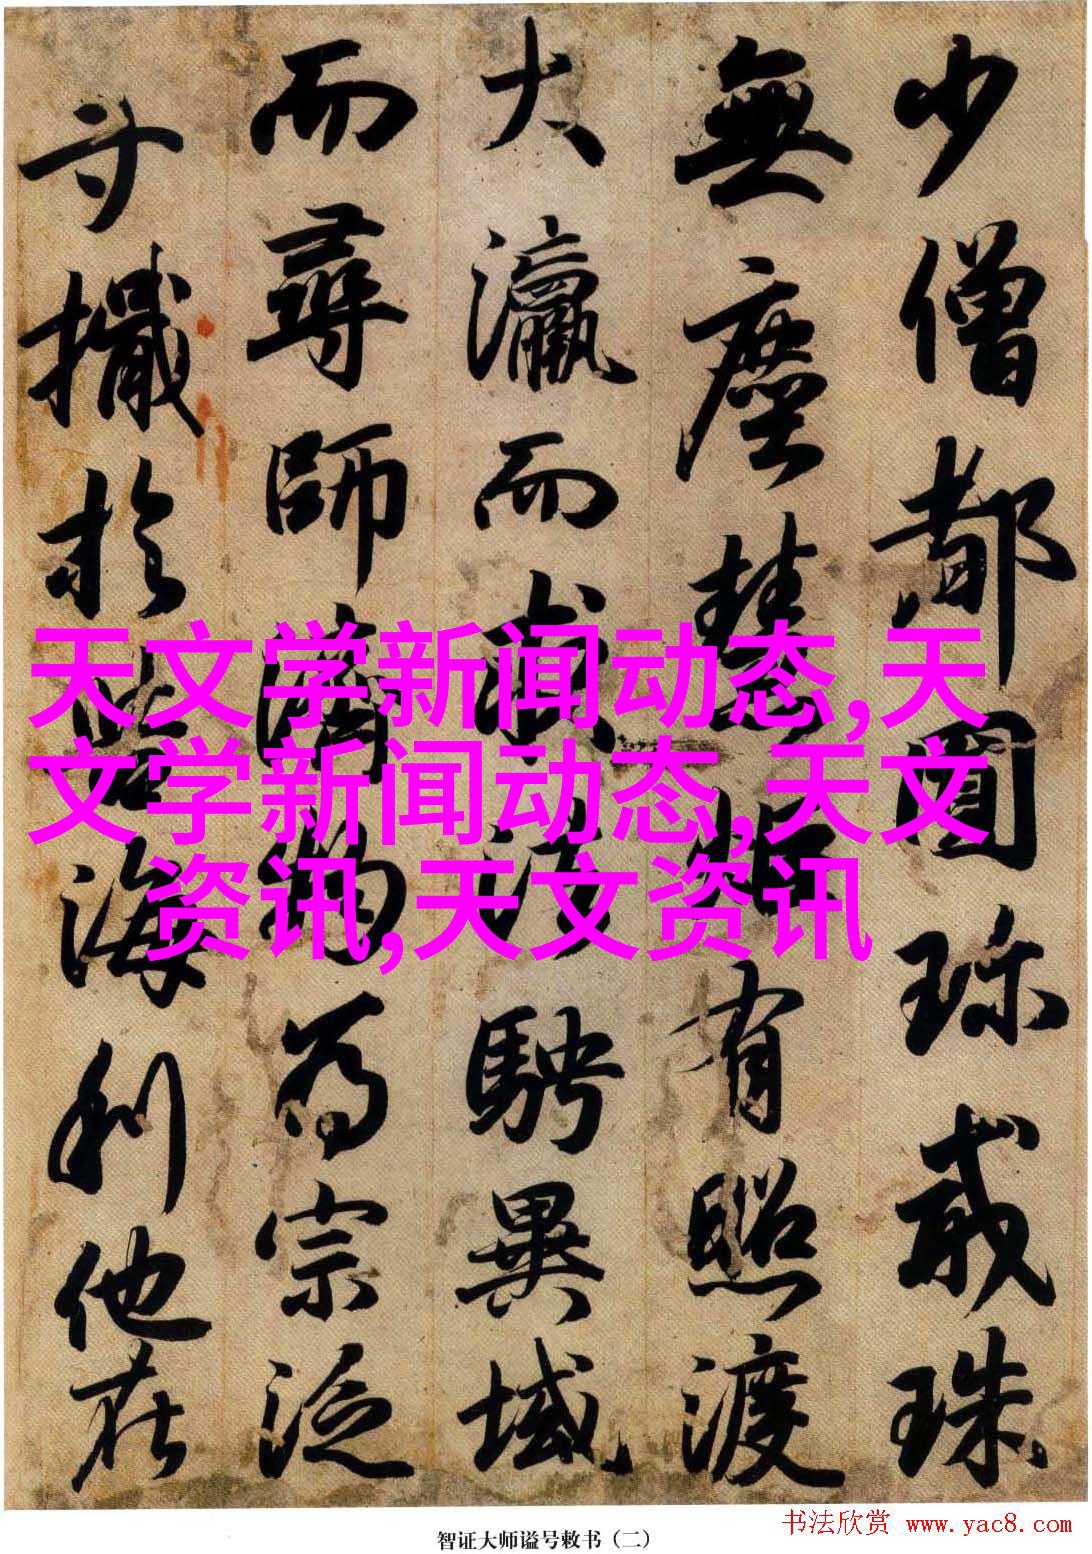 少僧都圓珎戒珠
無塵慧炬有照渡
大瀛而騁異域
而尋師濟物為宗泛
寸檝於苦海利他在
天文学新闻动态,天
文学新闻动态,天文
资讯,天文资讯
智证大师谥号敕书（二）
书法欣赏 www.yac8.com